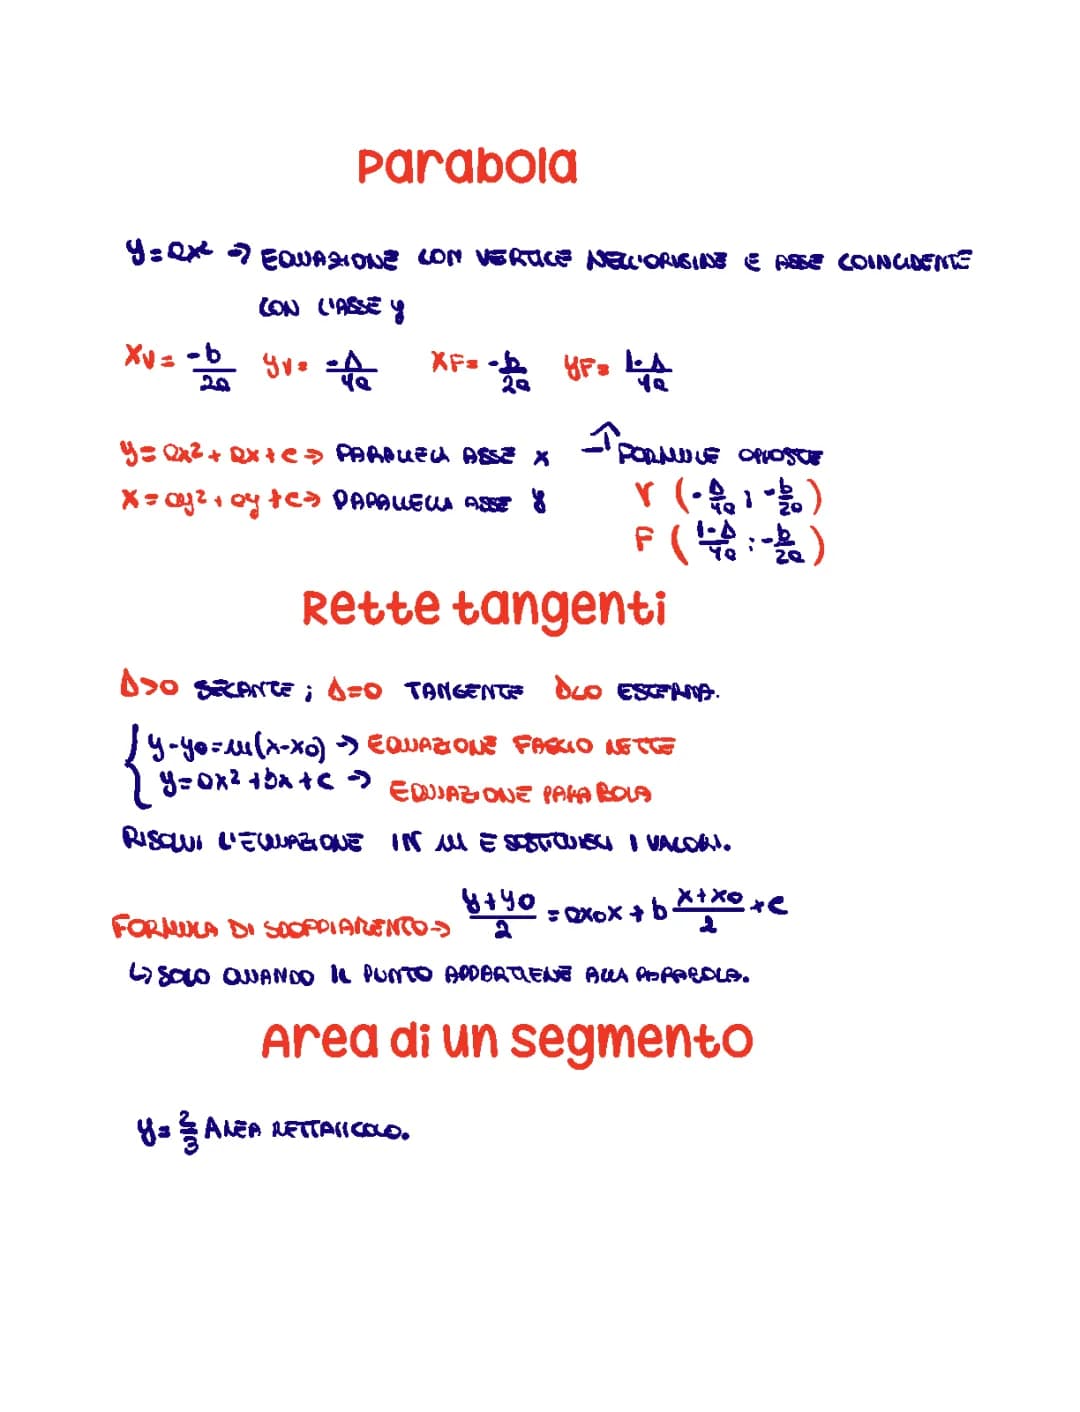 Parabola
y=ax² → EQUAZIONE CON VERTICE NELL'ORIGINE E ASSE COINCIDENTE
CON L'ASSE y
Xv = -b/2a yv = -Δ/4a XF = -b/2a yF = 1-Δ/4a
y = ax² + ax + c → PARALLELA ASSE x → FORMULE OPPOSTE
X = ay² + ay + c → PARALLELA ASSE y V (-Δ/4a ; -b/2a)
F (1-Δ/4a ; -b/2a)
Rette tangenti
Δ>0 SECANTE ; Δ=0 TANGENTE Δ<0 ESTERNA.
{ y-y0 = m(x-x0) → EQUAZIONE FASCIO RETTE
y = ax² + bx + c → EQUAZIONE PARABOLA
RISOLVI L'EQUAZIONE IN m E SOSTITUISCI I VALORI.
FORMULA DI SDOPPIAMENTO → y+y0/2 = ax0x + b x+x0/2 + c
↳ SOLO QUANDO IL PUNTO APPARTIENE ALLA PARABOLA.
Area di un segmento
y = 2/3 AREA RETTANGOLO.